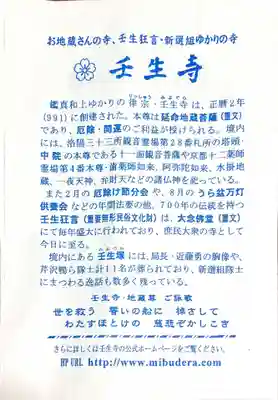 お地蔵さんの寺、壬生狂言・新選組ゆかりの寺
壬生寺
鑑真和上ゆかりの律宗・壬生寺は、正暦2年
りっしゅう みぶでら
(991)に創建された。本尊は延命地蔵菩薩(重文)
であり、厄除・開運のご利益が授けられる。境内
には、洛陽三十三所観音霊場第28番札所の塔頭・
中院の本尊である十一面観音菩薩や京都十二薬師
霊場第4番本尊・歯薬師如来、阿弥陀如来、水掛地
蔵、一夜天神、弁財天などの諸仏神を祀っている。
また2月の厄除け節分会や、8月のうら盆万灯
供養会などの年間法要の他、700年の伝統を持つ
壬生狂言(重要無形民俗文化財)は、大念佛堂(重文)
にて毎年盛大に行われており、庶民大衆の寺として
今日に至る。
境内にある壬生塚には、局長・近藤勇の胸像や、
みぶづか
芹沢鴨ら隊士計11名が葬られており、新選組隊士
にまつわる逸話も数多く残っている。
壬生寺・地蔵尊 ご詠歌
世を救う 誓いの船に 棹さして
わたすほとけの 慈悲ぞかしこき
さらに詳しくは壬生寺の公式ホームページをご覧ください。
HP URL http://www.mibudera.com